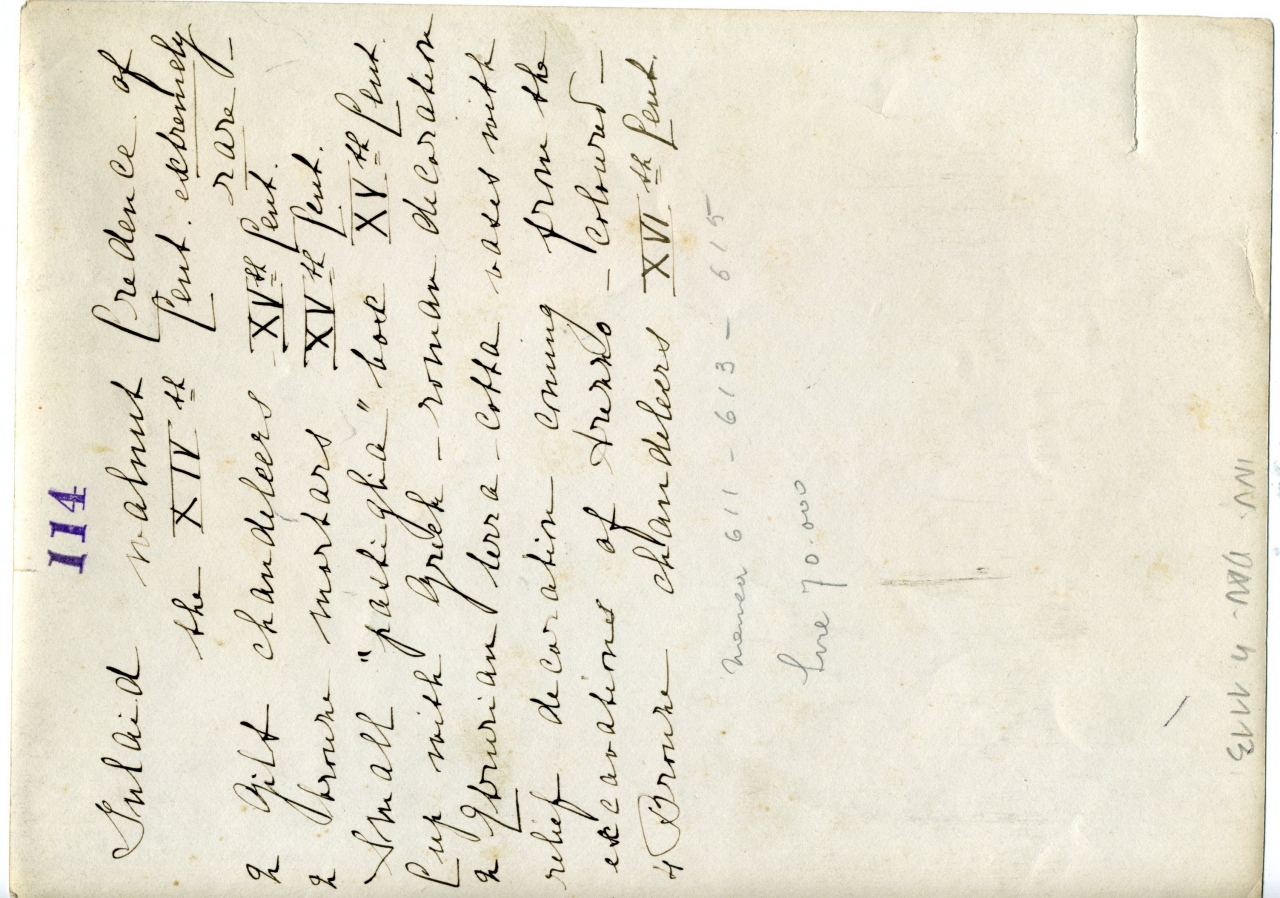 114
Inlaid walnut Credence of
the XIVth Cent. extremely
rare
2 Gilt chandeleers XVth Cent.
2 bronze mortars XVth Cent.
Small "pastiglia" box XVth Cent.
Cup with Greek-roman decoration
2 Etrurian terra-cotta vases with
relief decoration coming from the
excavations of Arezzo - coloured -
4 Bronze chandeleers XVI th Cent.
611 - 613 - 615
Lire 70.000
INV. 1113